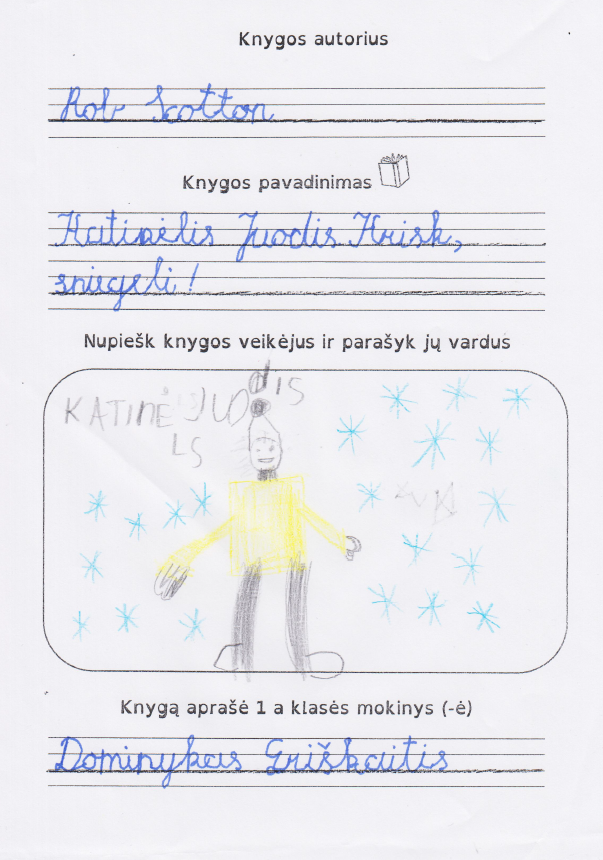 Knygos autorius
Rob Scotton
Knygos pavadinimas
Katinėlis Juodis Krisk,
sniegeli!
Nupiešk knygos veikėjus ir parašyk jų vardus
KATINĖ JUOdIS
LS
Knygą aprašė 1 a klasės mokinys (-ė)
Dominykas Griškaitis